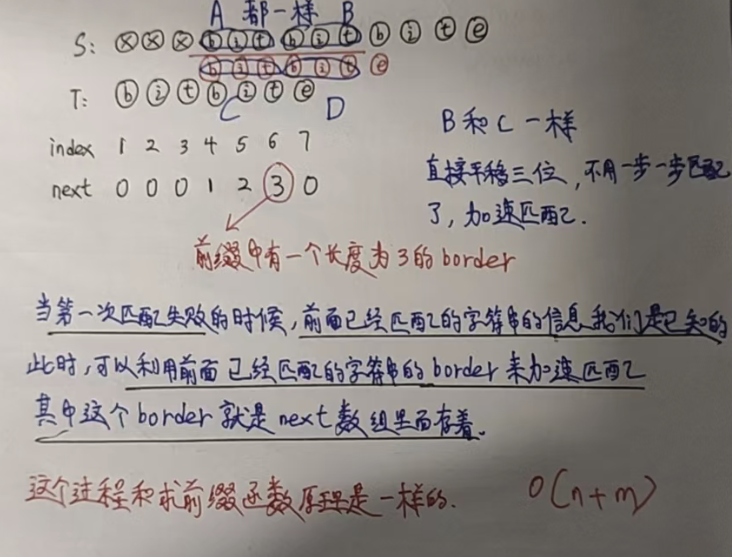 A 都一样 B
S: x x x b i t b i t b i t e
b i t b i t e
T: b i t b i t e
C D
index 1 2 3 4 5 6 7
next 0 0 0 1 2 3 0
B和C一样
直接平移三位,不用一步一步匹配
了,加速匹配.
前缀中有一个长度为3的border
当第一次匹配失败的时候,前面已经匹配的字符串的信息我们是已知的
此时,可以利用前面已经匹配的字符串的border来加速匹配
其中这个border就是next数组里面存着.
这个过程和求前缀函数原理是一样的. O(n+m)